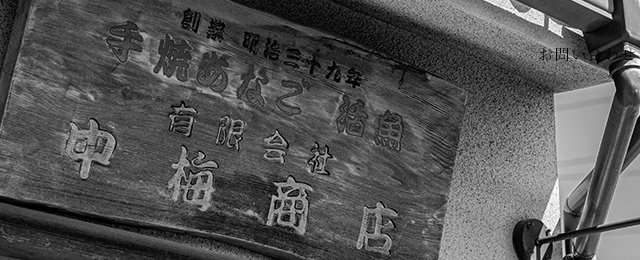 創業 明治三十九年
手焼あなご 活魚
有限会社
中梅商店
お問い合わせ